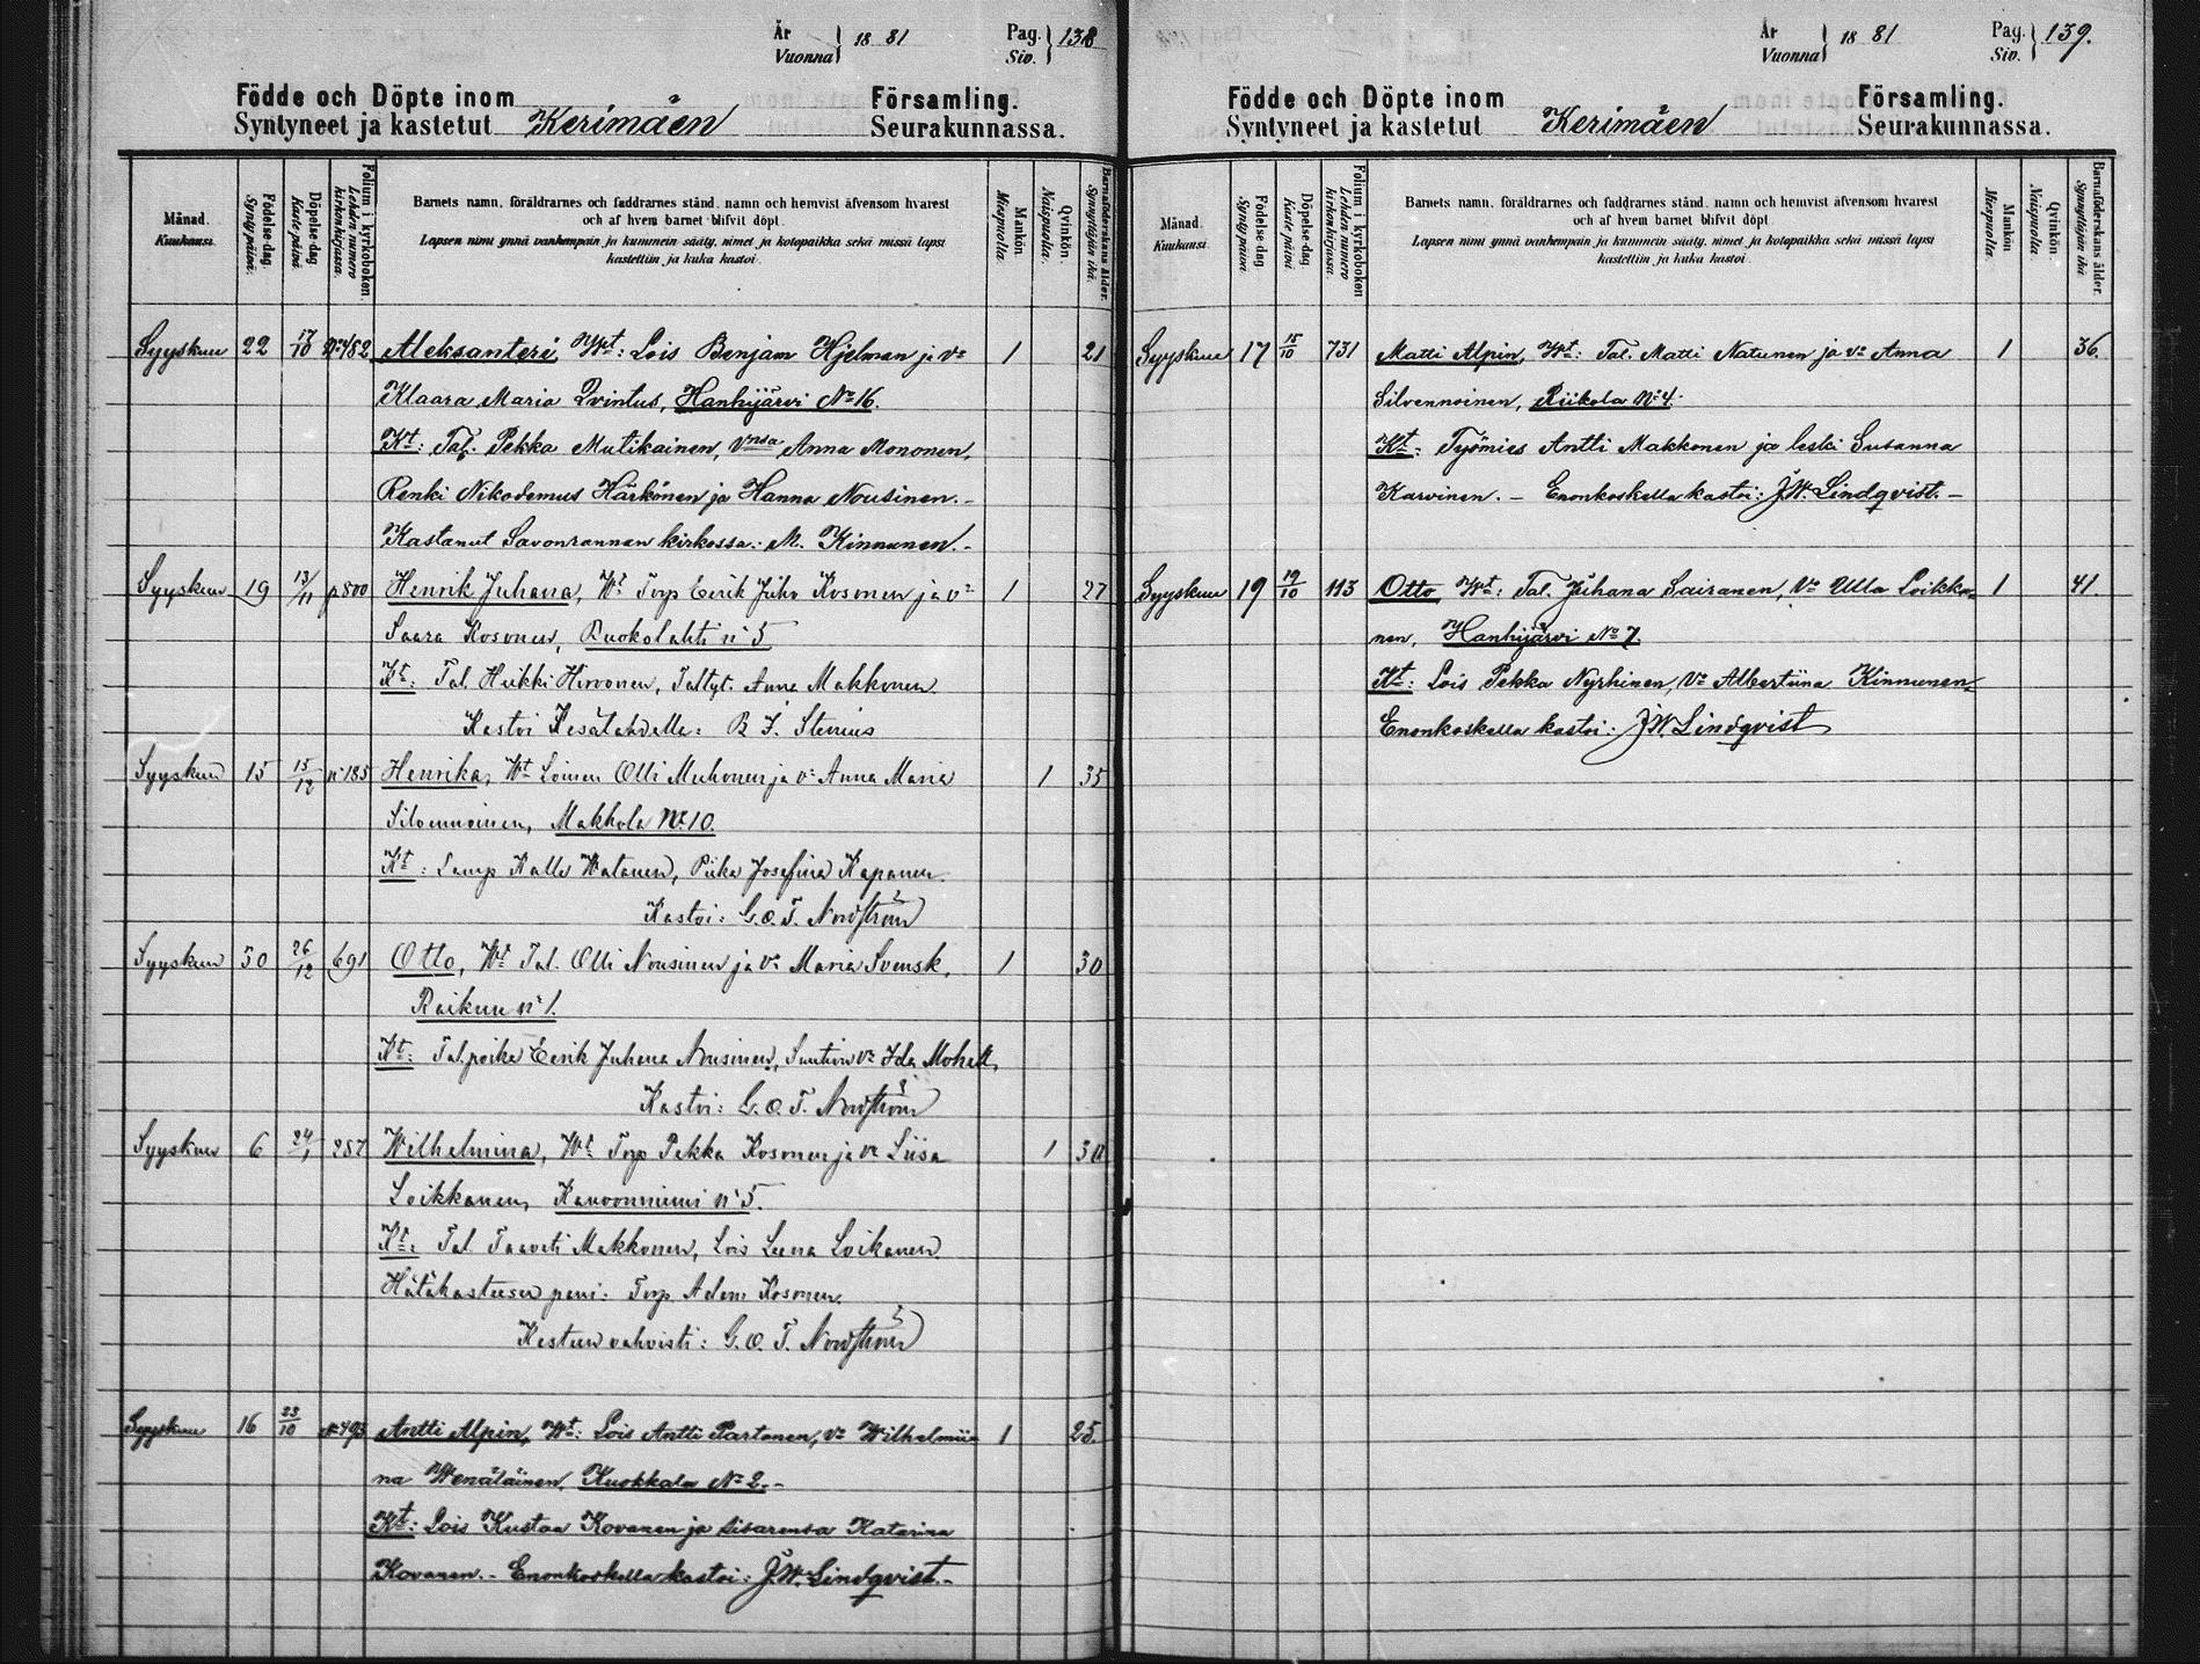 År Vuonna } 18 81 Pag. Siv. } 138
Födde och Döpte inom Församling.
Syntyneet ja kastetut Kerimäen Seurakunnassa.
Månad. Kuukausi. Födelse-dag. Synty-päivä. Döpelse-dag. Kaste-päivä. Folium i kyrkoboken. Lehden numero kirkonkirjassa.
Barnets namn, föräldrarnes och faddrarnes stånd, namn och hemvist äfvensom hvarest
och af hvem barnet blifvit döpt.
Lapsen nimi ynnä vanhempain ja kummein sääty, nimet ja kotopaikka sekä missä lapsi
kastettiin ja kuka kastoi.
Mankön. Miespuolia. Qvinkön. Naispuolia. Barnaföderskans ålder. Synnyttäjän ikä.
Syyskuu 22 17/10 482 Aleksanteri Wt: Lois Benjam Hjelman ja vo 1 21
Klaara Maria Qvintus, Hanhijärvi No 16.
Kt: Tal. Pekka Mutikainen, Vnsa Anna Mononen,
Renki Nikodemus Härkönen ja Hanna Nousinen.-
Kastanut Savonrannan kirkossa: M. Kinnunen.-
Syyskuu 19 13/11 p 800 Henrik Juhana, Wt Torp Eerik Juho Kosonen ja vo 1 27
Saara Kosonen, Ruokolahti no 5
Kt: Tal. Heikki Hirvonen, Taltyt. Anna Makkonen.
Kastoi Kesälahdella: B. J. Stenius
Syyskuu 15 15/12 no 185 Henrika, Wt Loinen Olli Muhonen ja vo Anna Maria 1 35
Silvennoinen, Makkola No 10.
Kt: Lamp Kalle Watanen, Piika Josefina Kapanen.
Kastoi: G. O. T. Nordström
Syyskuu 30 26/12 691 Otto, Wt Tal. Olli Nousinen ja vo Maria Svensk, 1 30
Raikuu no 1.
Kt: Tal. poika Eerik Juhana Nousinen, Suntion vo Ida Mohell,
Kastoi: G. O. T. Nordström
Syyskuu 6 24/1 287 Wilhelmina, Wt Torp Pekka Kosonen ja vo Liisa 1 30
Loikkanen, Kauvonniemi no 5.
Kt: Tal Taaveti Makkonen, Lois Leena Loikanen.
Hätäkasteesen pani: Torp Adam Kosonen.
Kasteen vahvisti: G. O. T. Nordström
Syyskuu 16 23/10 No 493 Antti Alpin, Wt: Lois Antti Partanen, vo Wilhelmii- 1 25.
na Wenäläinen, Kuokkala No 2.-
Kt: Lois Kustaa Kovanen ja sisarensa Katarina
Kovanen.- Enonkoskella kastoi: J. W. Lindqvist.-
År Vuonna } 18 81 Pag. Siv. } 139.
Födde och Döpte inom Församling.
Syntyneet ja kastetut Kerimäen Seurakunnassa.
Månad. Kuukausi. Födelse-dag. Synty-päivä. Döpelse-dag. Kaste-päivä. Folium i kyrkoboken. Lehden numero kirkonkirjassa.
Barnets namn, föräldrarnes och faddrarnes stånd, namn och hemvist äfvensom hvarest
och af hvem barnet blifvit döpt.
Lapsen nimi ynnä vanhempain ja kummein sääty, nimet ja kotopaikka sekä missä lapsi
kastettiin ja kuka kastoi.
Mankön. Miespuolia. Qvinkön. Naispuolia. Barnaföderskans ålder. Synnyttäjän ikä.
Syyskuu 17 15/10 731 Matti Alpin, Wt: Tal. Matti Natunen ja vo Anna 1 36.
Silvennoinen, Riikola No 4.
Kt: Työmies Antti Makkonen ja leski Susanna
Karvinen. - Enonkoskella kastoi: J. W. Lindqvist.-
Syyskuu 19 19/10 113 Otto Wt: Tal. Juhana Sairanen, Vo Ulla Loikka- 1 41.
nen, Hanhijärvi No 7.
Kt: Lois Pekka Nyrhinen, Vo Albertiina Kinnunen.-
Enonkoskella kastoi: J. W. Lindqvist